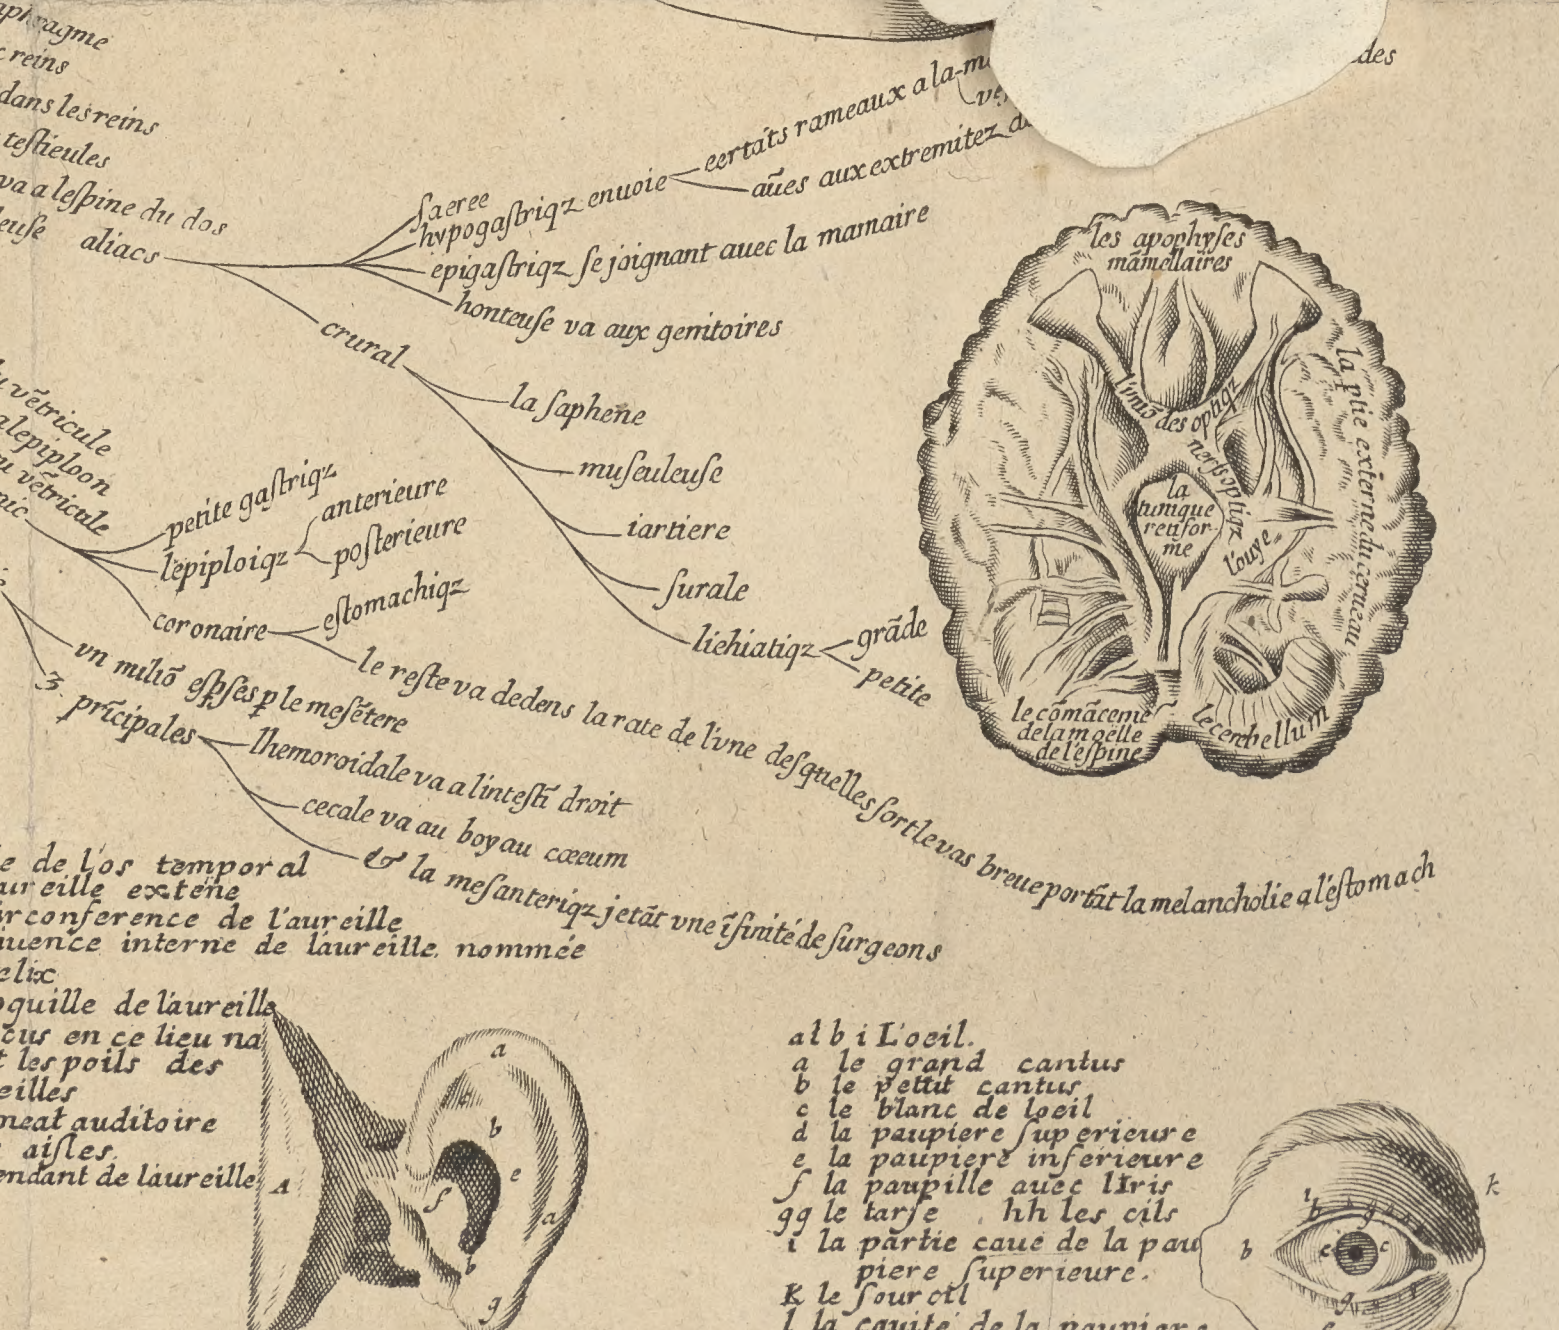 aphragme
reins
dans les reins
testicules
va a lespine du dos
aliacs
saeree
hypogastriqz enuoie
certāīs rameaux a la
aūes aux extremitez
des
epigastriqz se joignant auec la mamaire
honteuse va aux genitoires
crural
la saphene
museuleuse
iartiere
surale
lichiatiqz
grāde
petite
vētricule
alepiploon
vētricule
petite gastriqz
lepiploiqz
anterieure
posterieure
coronaire
estomachiqz
le reste va dedens la rate de l'vne desquelles sort le vas breue portāt la melancholie a l'estomach
vn miliō espses p le mesētere
3 prīcipales
lhemoroidale va a lintestī droit
cecale va au boyau cœcum
& la mesanteriqz jetāt vne īfinité de surgeons
les apophyses
māmellaires
l'vniō des optiqz
nerfs optiqz
la ptie externe du cerueau
la
tunique
retifor-
me
l'ouye
le cōmācemē
de la moëlle
de l'espine
le cerebellum
de l'os temporal
aureille extene
circonference de l'aureille
interne de laureille. nommée
elix
oquille de laureille
en ce lieu na
les poils des
eilles
meat auditoire
aisles.
endant de laureille
A
a
c
b
e
f
a
b
g
a l b i L'oeil.
a le grand cantus
b le pettit cantus
c le blanc de loeil
d la paupiere superieure
e la paupiere inferieure
f la paupille auec lIris
gg le tarse . hh les cils
i la partie caue de la pau
piere superieure.
K le sourcil
l la cauité de la paupiere
k
i
h
g
b
e
c
g